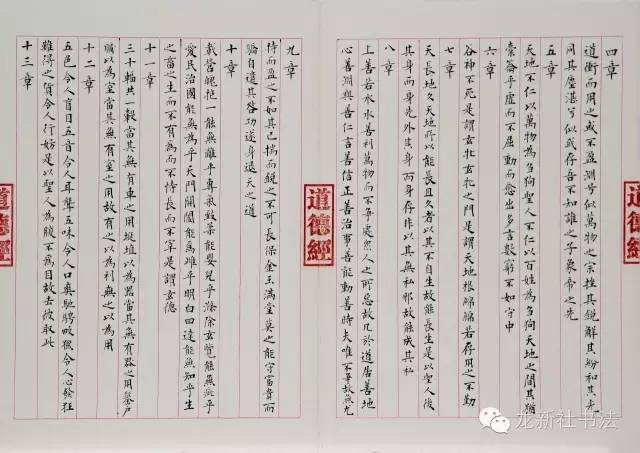 四章
道衝而用之或不盈淵兮似萬物之宗挫其銳解其紛和其光
同其塵湛兮似或存吾不知誰之子象帝之先
五章
天地不仁以萬物為芻狗聖人不仁以百姓為芻狗天地之間其猶
橐籥乎虛而不屈動而愈出多言數窮不如守中
六章
谷神不死是謂玄牝玄牝之門是謂天地根綿綿若存用之不勤
七章
天長地久天地所以能長且久者以其不自生故能長生是以聖人後
其身而身先外其身而身存非以其無私邪故能成其私
八章
上善若水水善利萬物而不爭處衆人之所惡故几於道居善地
心善淵與善仁言善信正善治事善能動善時夫唯不爭故無尤
道德經
九章
持而盈之不如其已揣而銳之不可長保金玉滿堂莫之能守富貴而
驕自遺其咎功遂身退天之道
十章
載營魄抱一能無離乎專氣致柔能嬰兒乎滌除玄覽能無疵乎
愛民治國能無為乎天門開闔能為雌乎明白四達能無知乎生
之畜之生而不有為而不恃長而不宰是謂玄德
十一章
三十輻共一轂當其無有車之用埏埴以為器當其無有器之用鑿戶
牖以為室當其無有室之用故有之以為利無之以為用
十二章
五色令人盲目五音令人耳聾五味令人口爽馳騁畋獵令人心發狂
難得之貨令人行妨是以聖人為腹不為目故去彼取此
十三章
道德經
龙新社书法